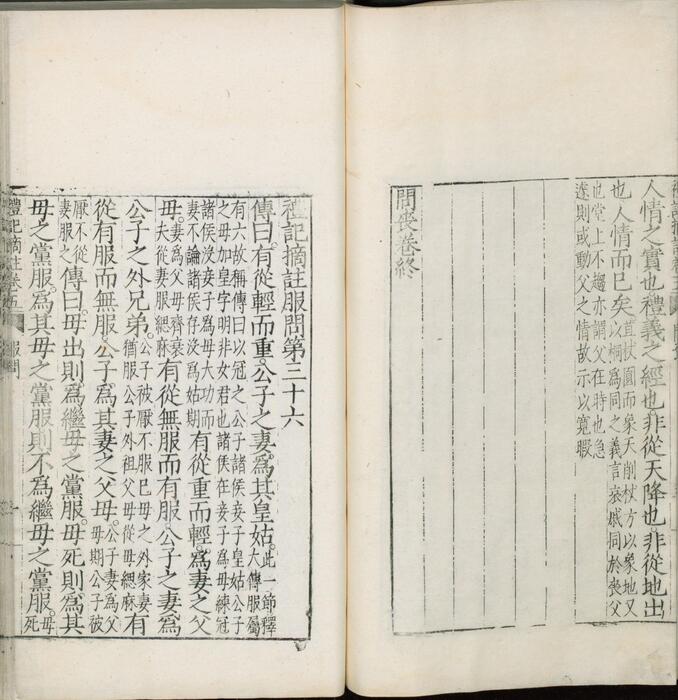 人情之實也禮義之經也。非從天降也。非從地出
也人情而已矣
苴杖圓而象天削杖方以象地又
以桐為同之義言哀戚同於喪父
也堂上不趨亦謂父在時也急
遽則或動父之情故示以寬暇
問喪卷終
禮記摘註服問第三十六
傳曰。有從輕而重。公子之妻。為其皇姑。
此一節釋
大傳服屬
有六故稱傳曰以冠之公子諸侯妾子皇姑公子
之母加皇字明非女君也諸侯在妾子為母練冠
諸侯沒妾子為母大功而
妻不論諸侯存沒為姑期
有從重而輕。為妻之父
母。
妻為父母齊衰
夫從妻服緦麻
有從無服而有服。公子之妻。為
公子之外兄弟。
公子被厭不服已母之外家妻
猶服公子外祖父母從母緦麻
有
從有服而無服。公子為其妻之父母。
公子妻為父
母期公子被
厭不從
妻服之
傳曰。母出則為繼母之黨服。母死則為其
母之黨服。為其母之黨服則不為繼母之黨服。
母
死
禮記摘註卷五
服問